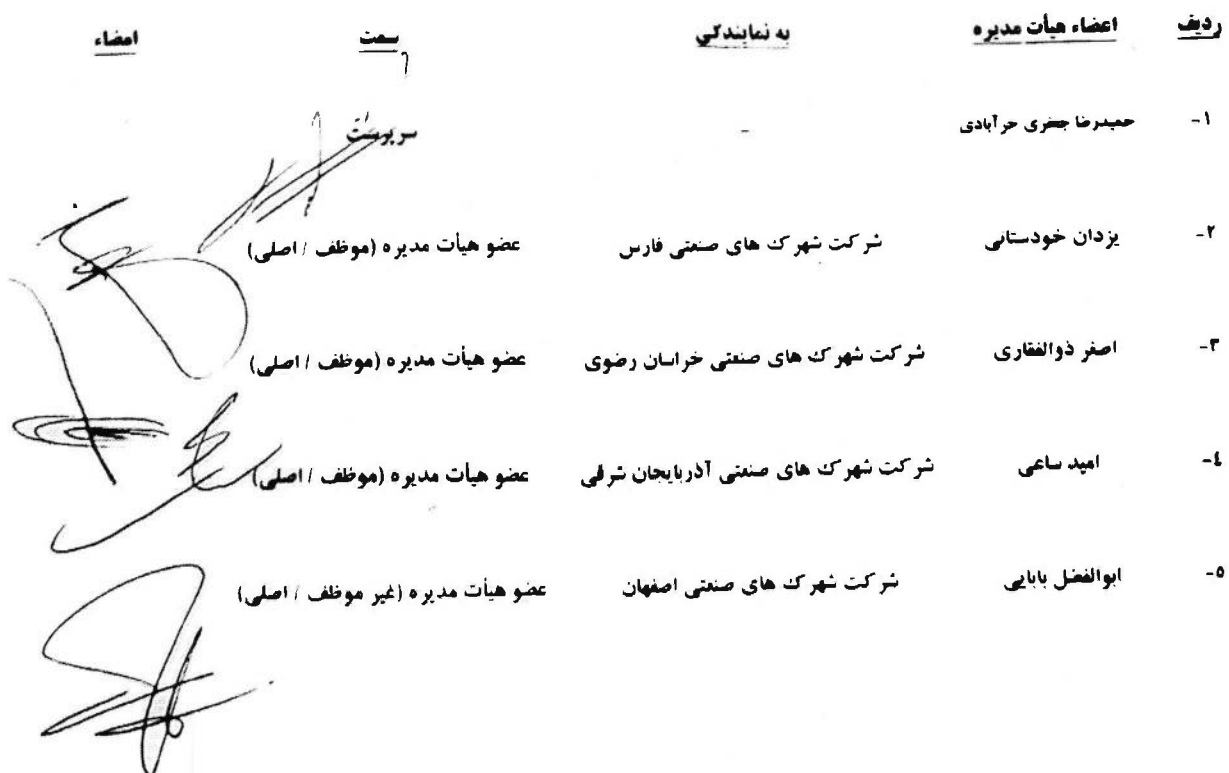 ردیف اعضاء هیأت مدیره به نمایندگی سمت امضاء
۱- حمیدرضا جعفری حرآبادی - سرپرست
۲- یزدان خودستانی شرکت شهرک های صنعتی فارس عضو هیأت مدیره (موظف / اصلی)
۳- اصغر ذوالفقاری شرکت شهرک های صنعتی خراسان رضوی عضو هیأت مدیره (موظف / اصلی)
۴- امید ساعی شرکت شهرک های صنعتی آذربایجان شرقی عضو هیأت مدیره (موظف / اصلی)
۵- ابوالفضل بابایی شرکت شهرک های صنعتی اصفهان عضو هیأت مدیره (غیر موظف / اصلی)